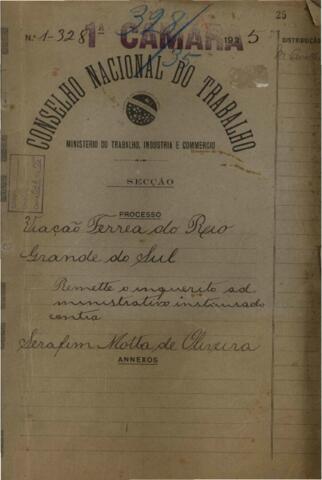 25
398/35
Nº 1-328
1ª CAMARA
1935
DISTRIBUIÇÃO
CONSELHO NACIONAL DO TRABALHO
MINISTERIO DO TRABALHO, INDUSTRIA E COMMERCIO
SECÇÃO
PROCESSO
Viação Ferrea do Rio
Grande do Sul
Remette o inquerito ad
ministrativo instaurado
contra
Serafim Motta de Oliveira
ANNEXOS